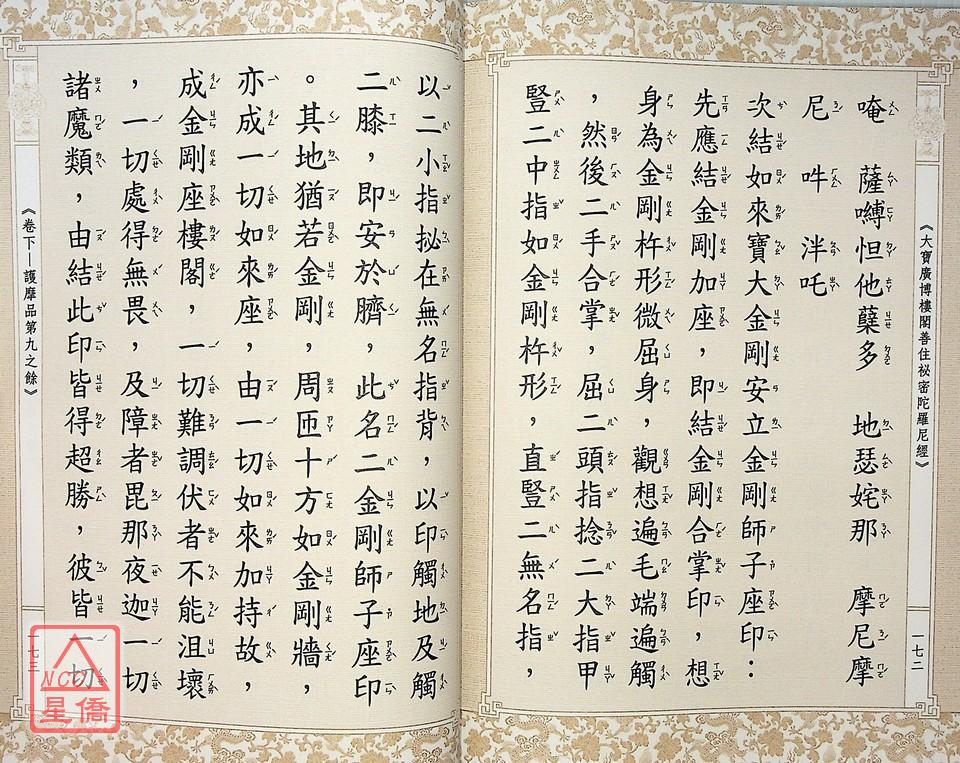 《大寶廣博樓閣善住祕密陀羅尼經》
一七二
唵　薩嚩怛他蘖多　地瑟姹那　摩尼摩
尼　吽　泮吒
次結如來寶大金剛安立金剛師子座印：
先應結金剛加座，即結金剛合掌印，想
身為金剛杵形微屈身，觀想遍毛端遍觸
，然後二手合掌，屈二頭指捻二大指甲
豎二中指如金剛杵形，直豎二無名指，
以二小指拟在無名指背，以印觸地及觸
二膝，即安於臍，此名二金剛師子座印
。其地猶若金剛，周匝十方如金剛牆，
亦成一切如來座，由一切如來加持故，
成金剛座樓閣，一切難調伏者不能沮壞
，一切處得無畏，及障者毘那夜迦一切
諸魔類，由結此印皆得超勝，彼皆一切
《卷下—護摩品第九之餘》
一七三
NCC
星僑